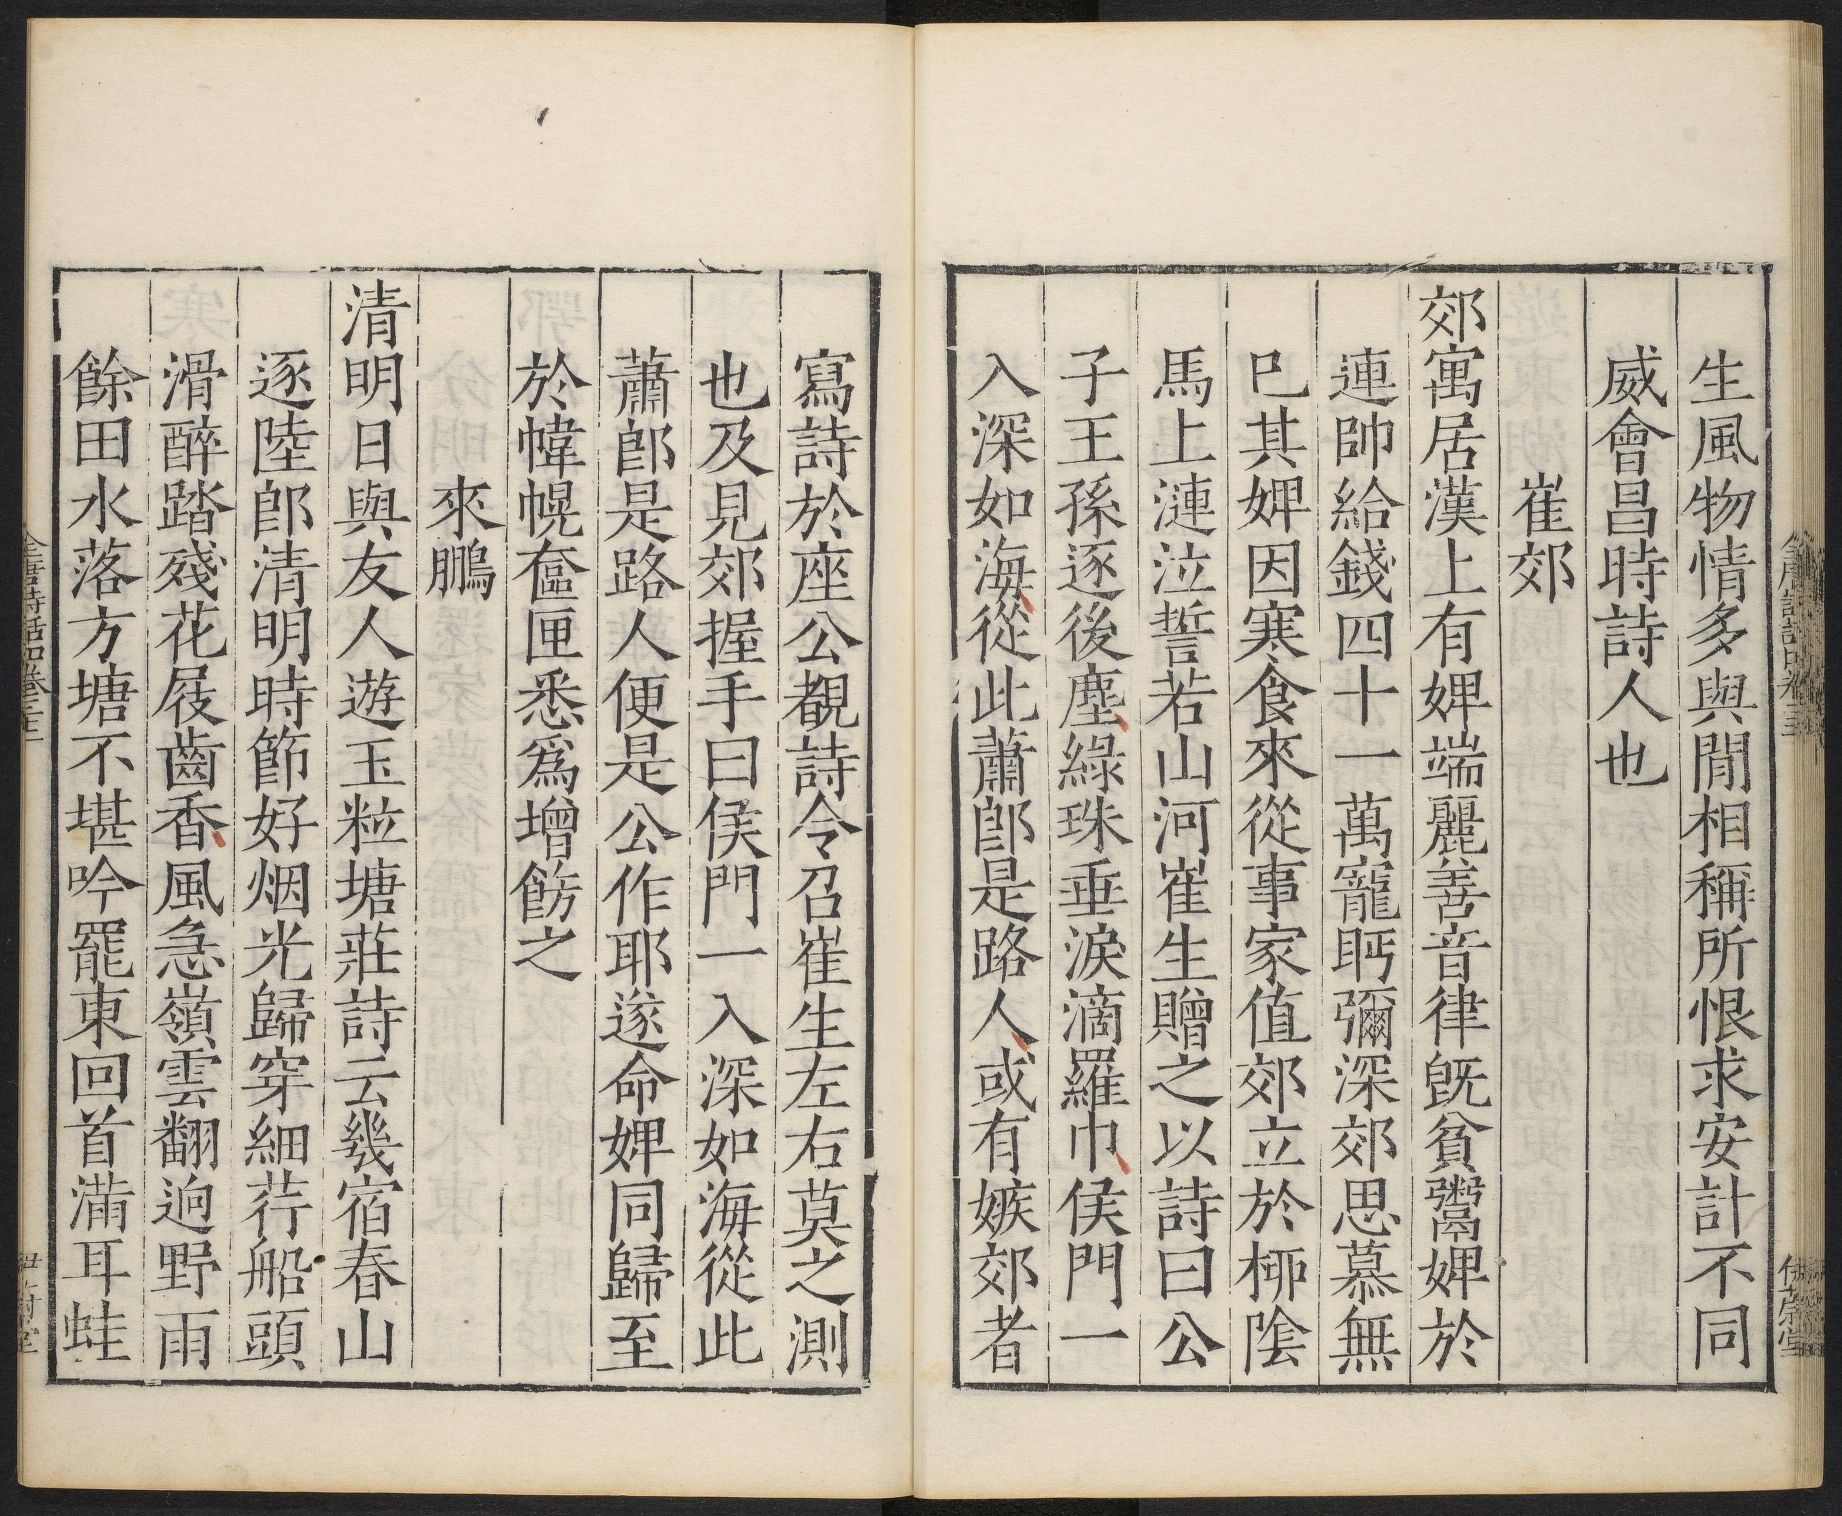 生風物情多與閒相稱所恨求安計不同
威會昌時詩人也
崔郊
郊寓居漢上有婢端麗善音律旣貧鬻婢於
連帥給錢四十一萬寵眄彌深郊思慕無
巳其婢因寒食來從事家值郊立於栁陰
馬上漣泣誓若山河崔生贈之以詩曰公
子王孫逐後塵綠珠垂淚滴羅巾侯門一
入深如海從此蕭郎是路人或有嫉郊者
寫詩於座公覩詩令召崔生左右莫之測
也及見郊握手曰侯門一入深如海從此
蕭郎是路人便是公作耶遂命婢同歸至
於幃幌奩匣悉爲增飾之
來鵬
清明日與友人遊玉粒塘莊詩云幾宿春山
逐陸郎清明時節好烟光歸穿細荇船頭
滑醉踏殘花屐齒香風急嶺雲翻逈野雨
餘田水落方塘不堪吟罷東回首滿耳蛙